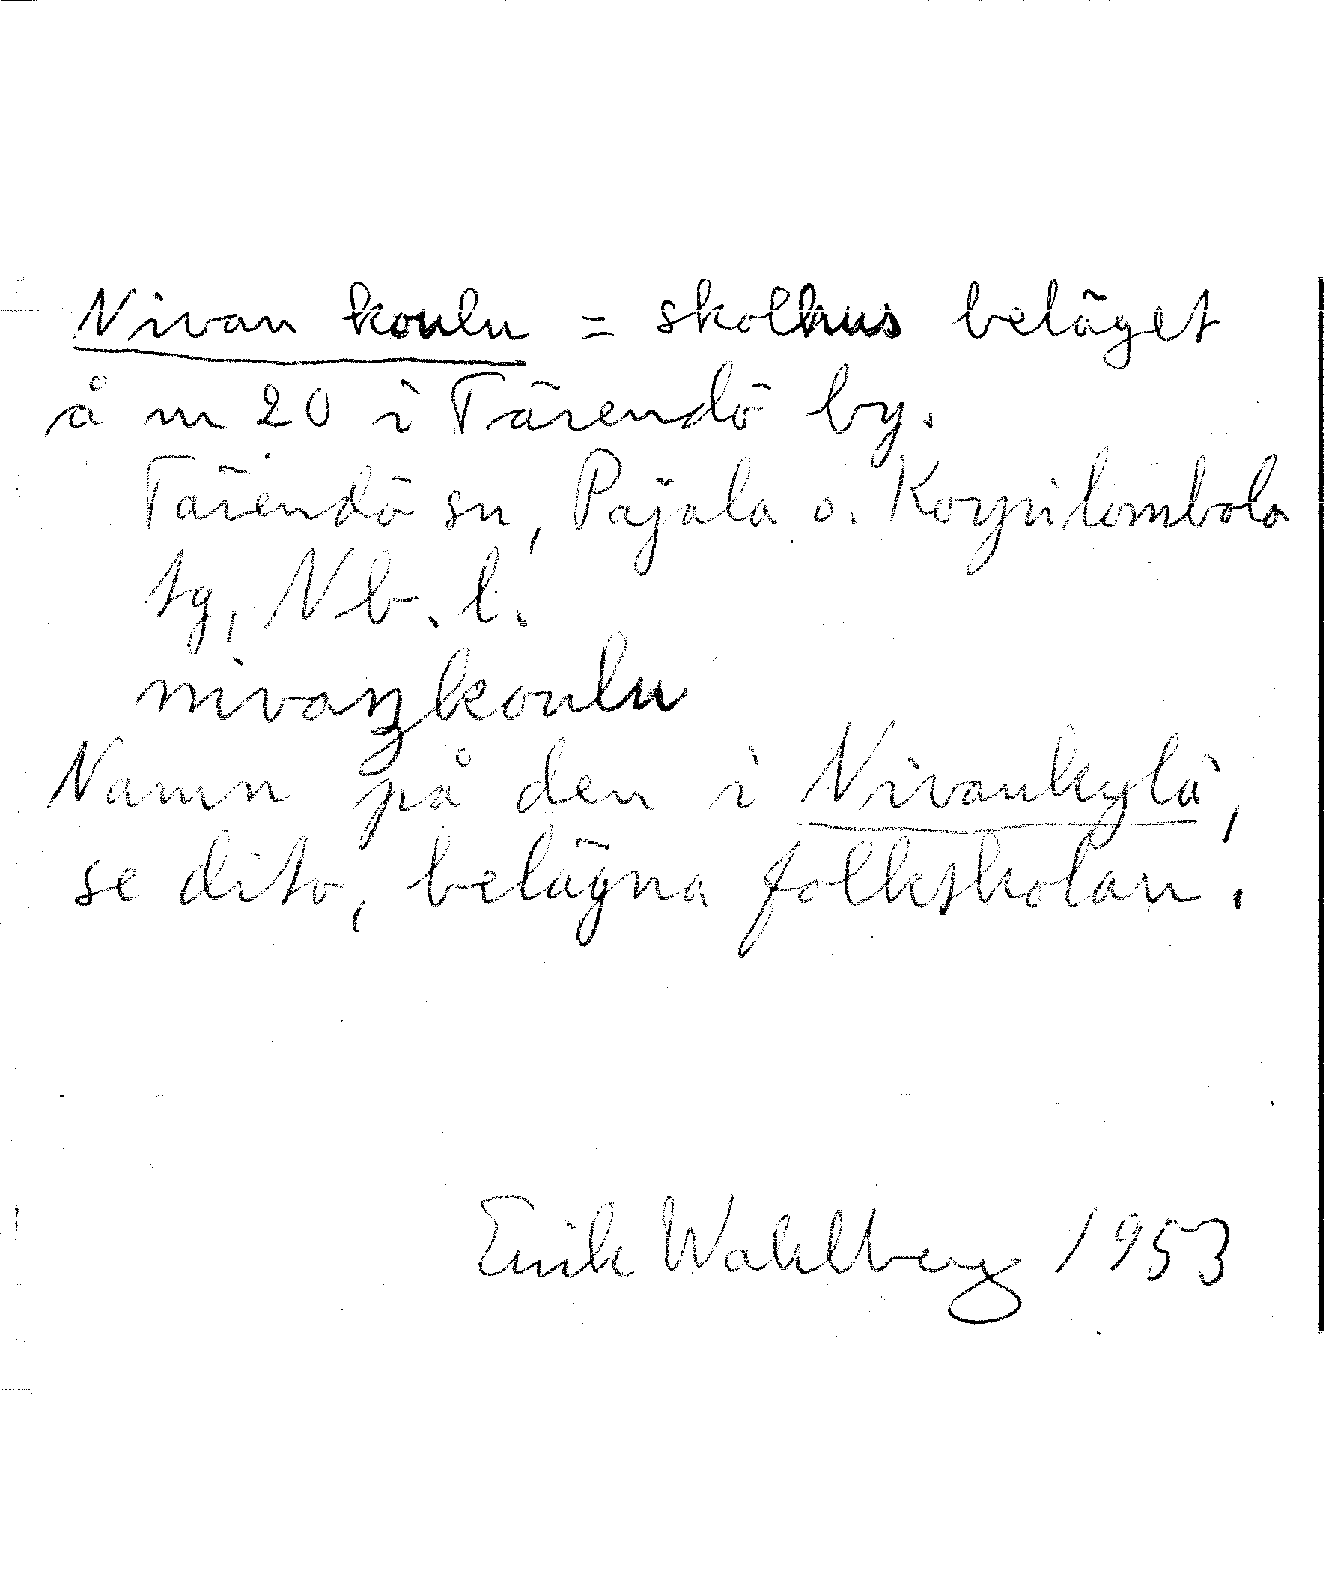 Nivan koulu = skolhus beläget
å nr 20 i Tärendö by.
Tärendö sn, Pajala o. Korpilombolo
tg, Nb. l.
nivaŋkoulu
Namn på den i Nivankylä,
se dito, belägna folkskolan.
Erik Wahlberg 1953